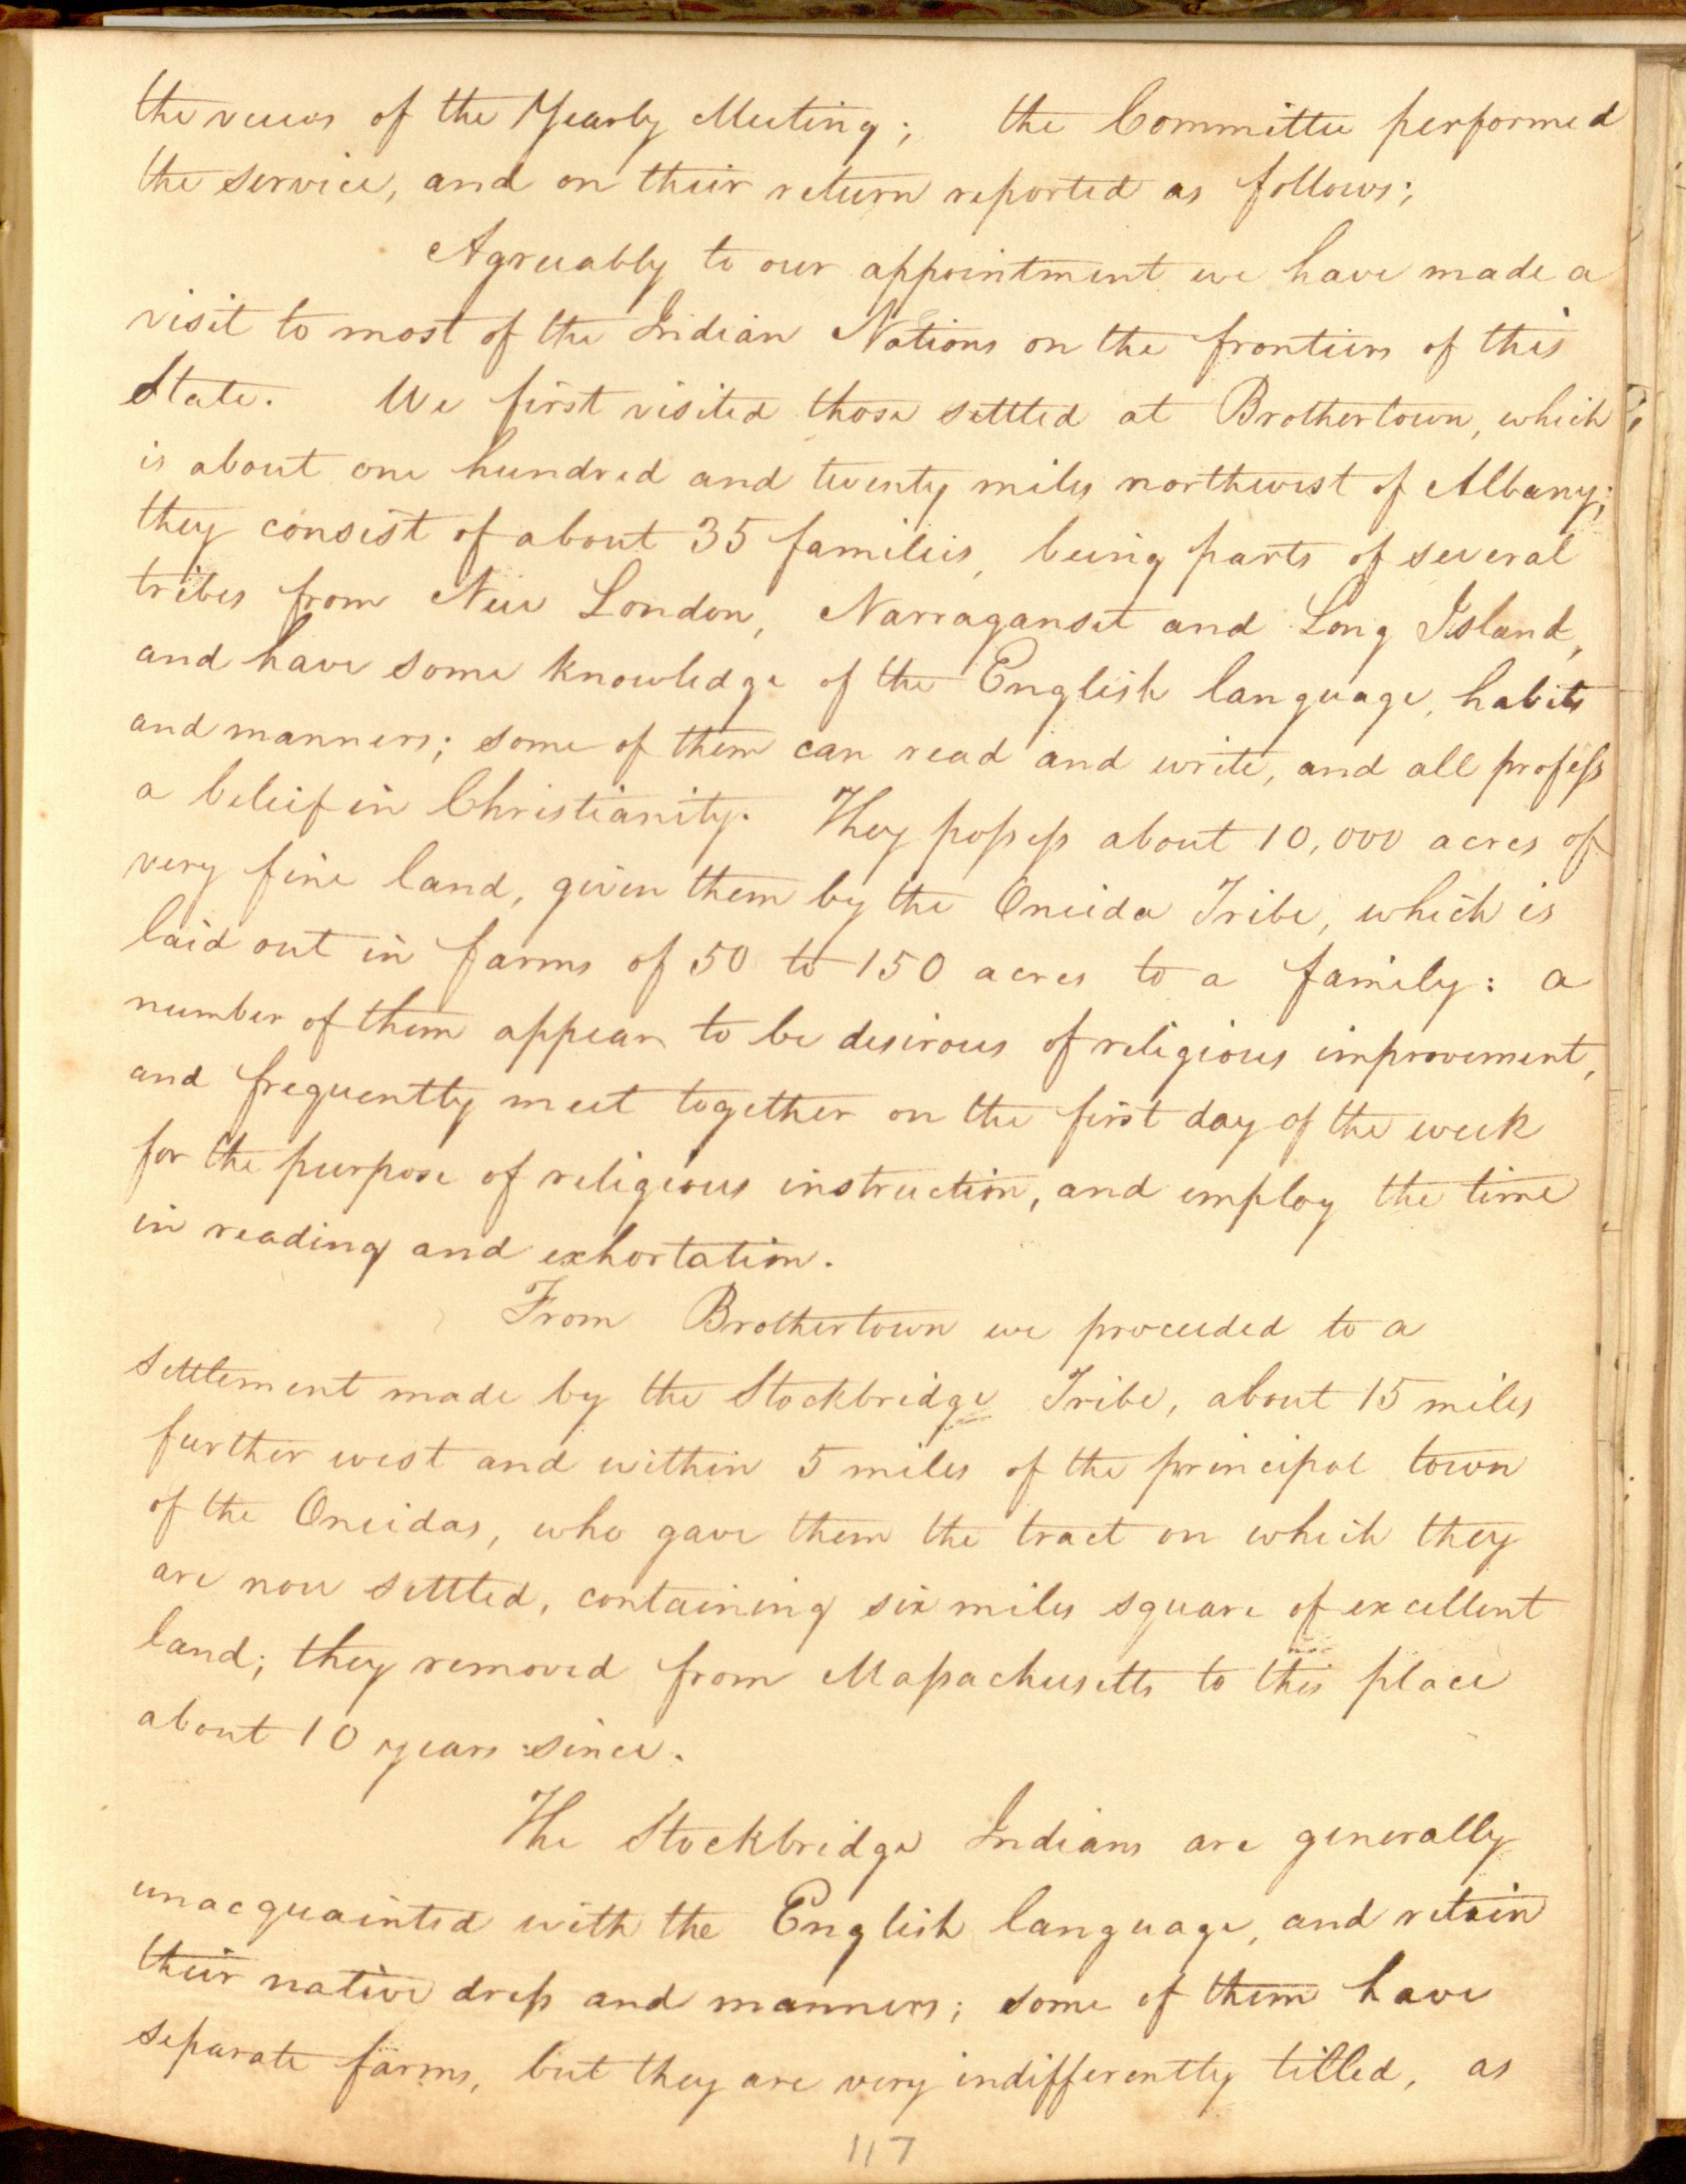 the views of the Yearly Meeting; the Committee performed
the service, and on their return reported as follows;
Agreeably to our appointment we have made a
visit to most of the Indian Nations on the frontiers of this
State. We first visited those settled at Brothertown, which
is about one hundred and twenty miles northwest of Albany;
they consist of about 35 families, being parts of several
tribes from New London, Narraganset and Long Island,
and have some knowledge of the English language, habits
and manners; some of them can read and write, and all profess
a beleif in Christianity. They possess about 10,000 acres of
very fine land, given them by the Oneida Tribe, which is
laid out in farms of 50 to 150 acres to a family: a
number of them appear to be desirous of religious improvement,
and frequently meet together on the first day of the week
for the purpose of religious instruction, and employ the time
in reading and exhortation.
From Brothertown we proceeded to a
settlement made by the Stockbridge Tribe, about 15 miles
further west and within 5 miles of the principal town
of the Oneidas, who gave them the tract on which they
are now settled, containing six miles square of excellent
land; they removed from Massachusetts to this place
about 10 years since.
The Stockbridge Indians are generally
unacquainted with the English language, and retain
their native dress and manners; some of them have
separate farms, but they are very indifferently tilled, as
117